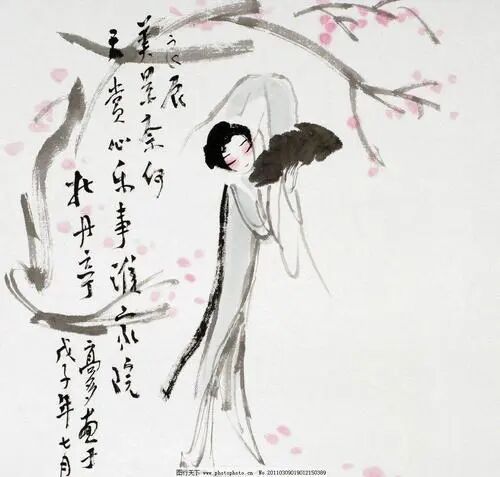 良辰
美景奈何
天赏心乐事谁家院
牡丹亭
画于
戊子年七月
www.photophoto.cn No.20110309019012150389